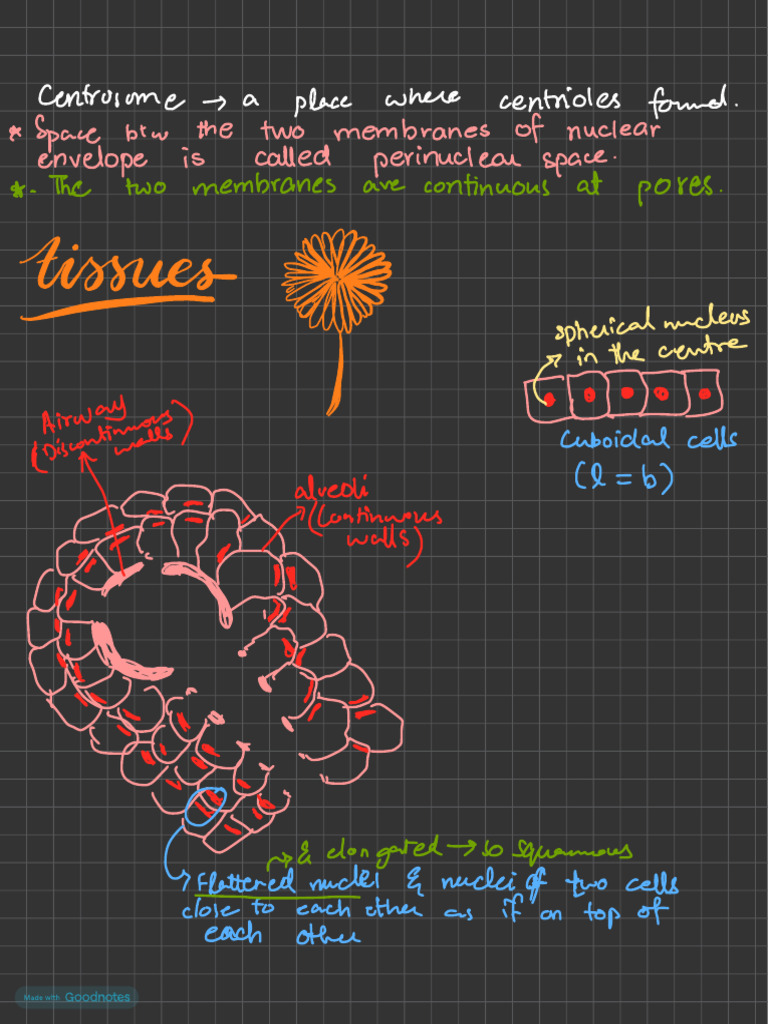 Centrosome → a place where centrioles formed.
* Space btw the two membranes of nuclear
envelope is called perinuclear space.
*- The two membranes are continuous at pores.
tissues
spherical nucleus
in the centre
Cuboidal cells
(l = b)
Airway
(Discontinuous
walls)
alveoli
(Continuous
walls)
& elongated → so squamous
Flattered nuclei & nuclei of two cells
close to each other as if on top of
each other
Made with Goodnotes